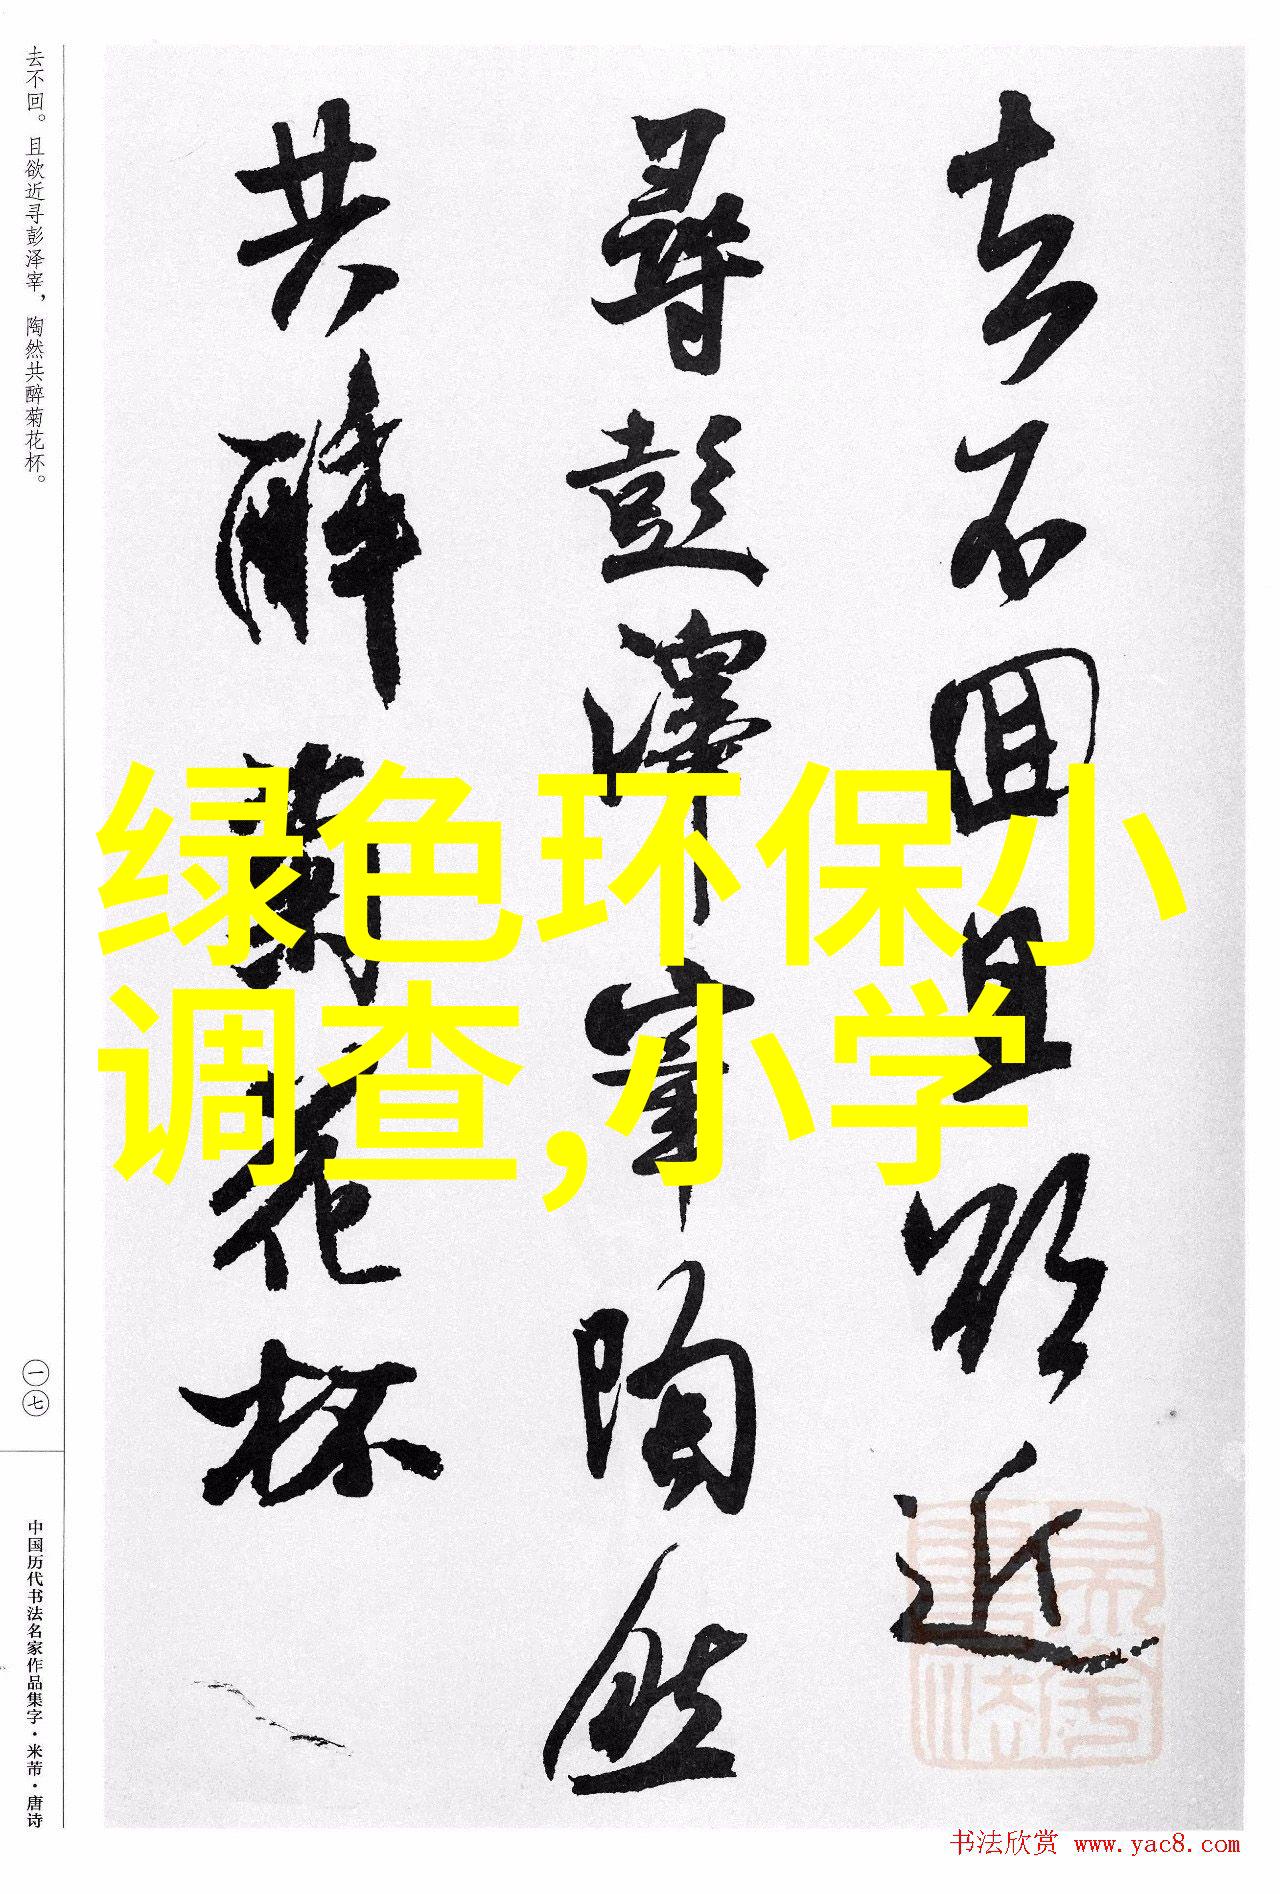 去不回。且欲近寻彭泽宰，陶然共醉菊花杯。
去不回且欲近
尋彭澤宰陶然
共醉菊花杯
绿色环保小
调查,小学
一七
中国历代书法名家作品集字·米芾·唐诗
书法欣赏 www.yac8.com